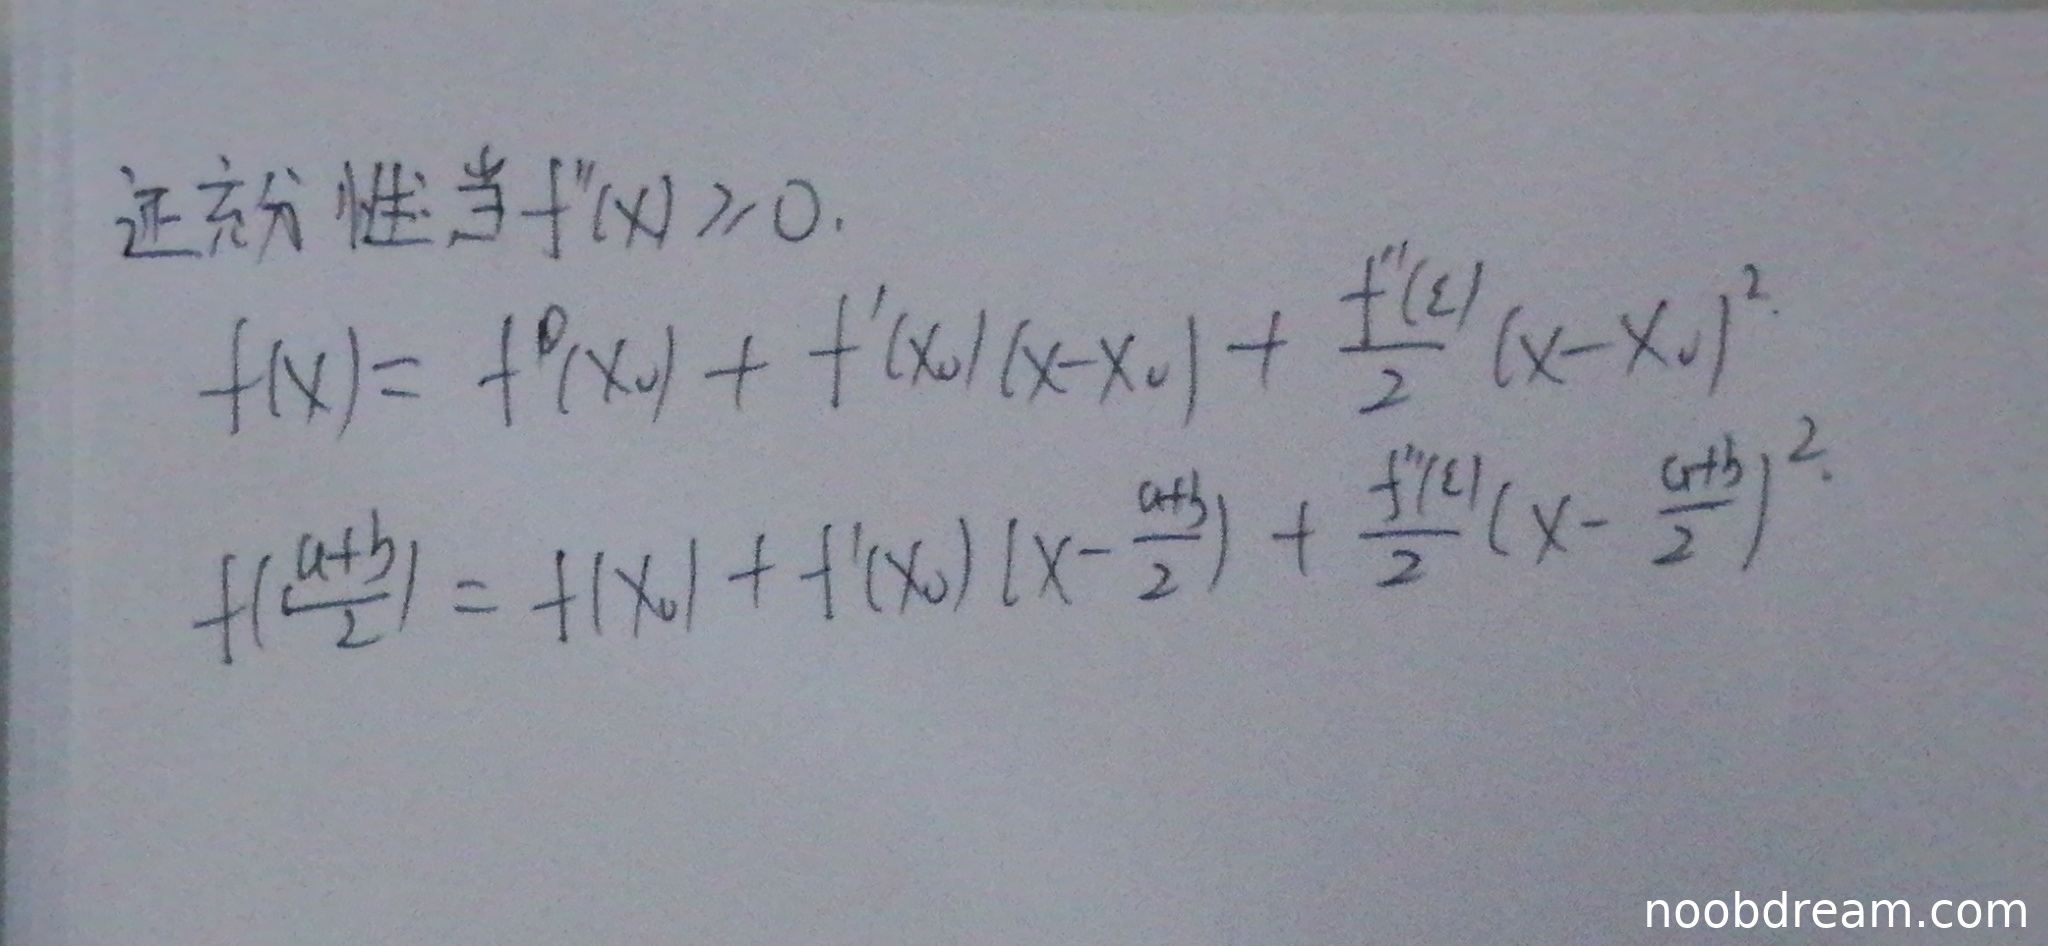 证充分性当f''(x)≥0.
f(x)= f⁰(x₀) + f'(x₀)(x-x₀) + f''(ξ)/2 (x-x₀)².
f((a+b)/2) = f(x₀) + f'(x₀)(x-(a+b)/2) + f''(ξ)/2 (x-(a+b)/2)².
noobdream.com